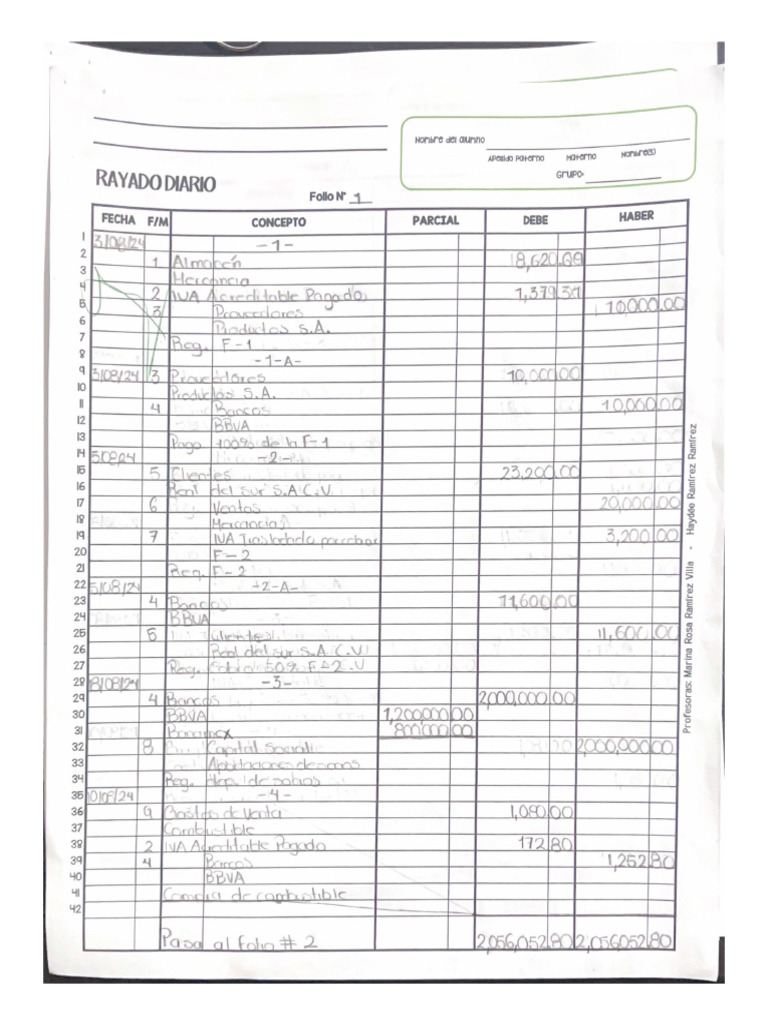 Nombre del alumno
Apellido Paterno Materno Nombre(s)
Grupo:
RAYADO DIARIO
Folio N° 1
FECHA F/M CONCEPTO PARCIAL DEBE HABER
1 3/08/24 -1-
2 1 Almacén 8,620.69
3 Mercancia
4 2 IVA Acreditable Pagado 1,379.31
5 3 Proveedores 10,000.00
6 Productos S.A.
7 Reg. F-1
8 -1-A-
9 3/08/24 3 Proveedores 10,000.00
10 Productos S.A.
11 4 Bancos 10,000.00
12 BBVA
13 Pago 100% de la F-1
14 5/08/24 -2-
15 5 Clientes 23,200.00
16 Real del sur S.A C.V.
17 6 Ventas 20,000.00
18 Mercancia
19 7 IVA Trasladado por cobrar 3,200.00
20 F-2
21 Reg. F-2
22 5/08/24 -2-A-
23 4 Bancos 11,600.00
24 BBVA
25 5 Clientes 11,600.00
26 Real del sur S.A C.V.
27 Reg. 50% F-2
28 8/08/24 -3-
29 4 Bancos 2,000,000.00
30 BBVA 1,200,000.00
31 Banamex 800,000.00
32 8 Capital Social 2,000,000.00
33 Aportaciones de socios
34 Reg. de socios
35 -4-
36 9 Gastos de Venta 1,080.00
37 Combustible
38 2 IVA Acreditable Pagado 172.80
39 4 Bancos 1,252.80
40 BBVA
41 Compra de combustible
42
Pasa al folio # 2 2,056,052.80 2,056,052.80
Profesoras: Marina Rosa Ramírez Villa - Haydée Ramírez Ramírez